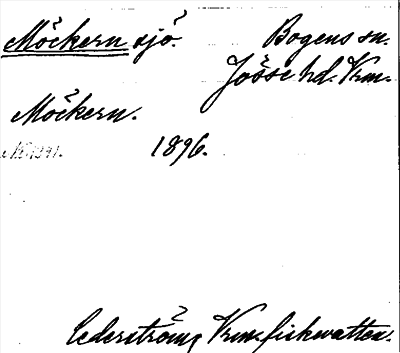 Möckern sjö. Bogens sn.
Jösse hd. Vrm.
Möckern.
1896.
Cederström, Vrm. fiskvatten.